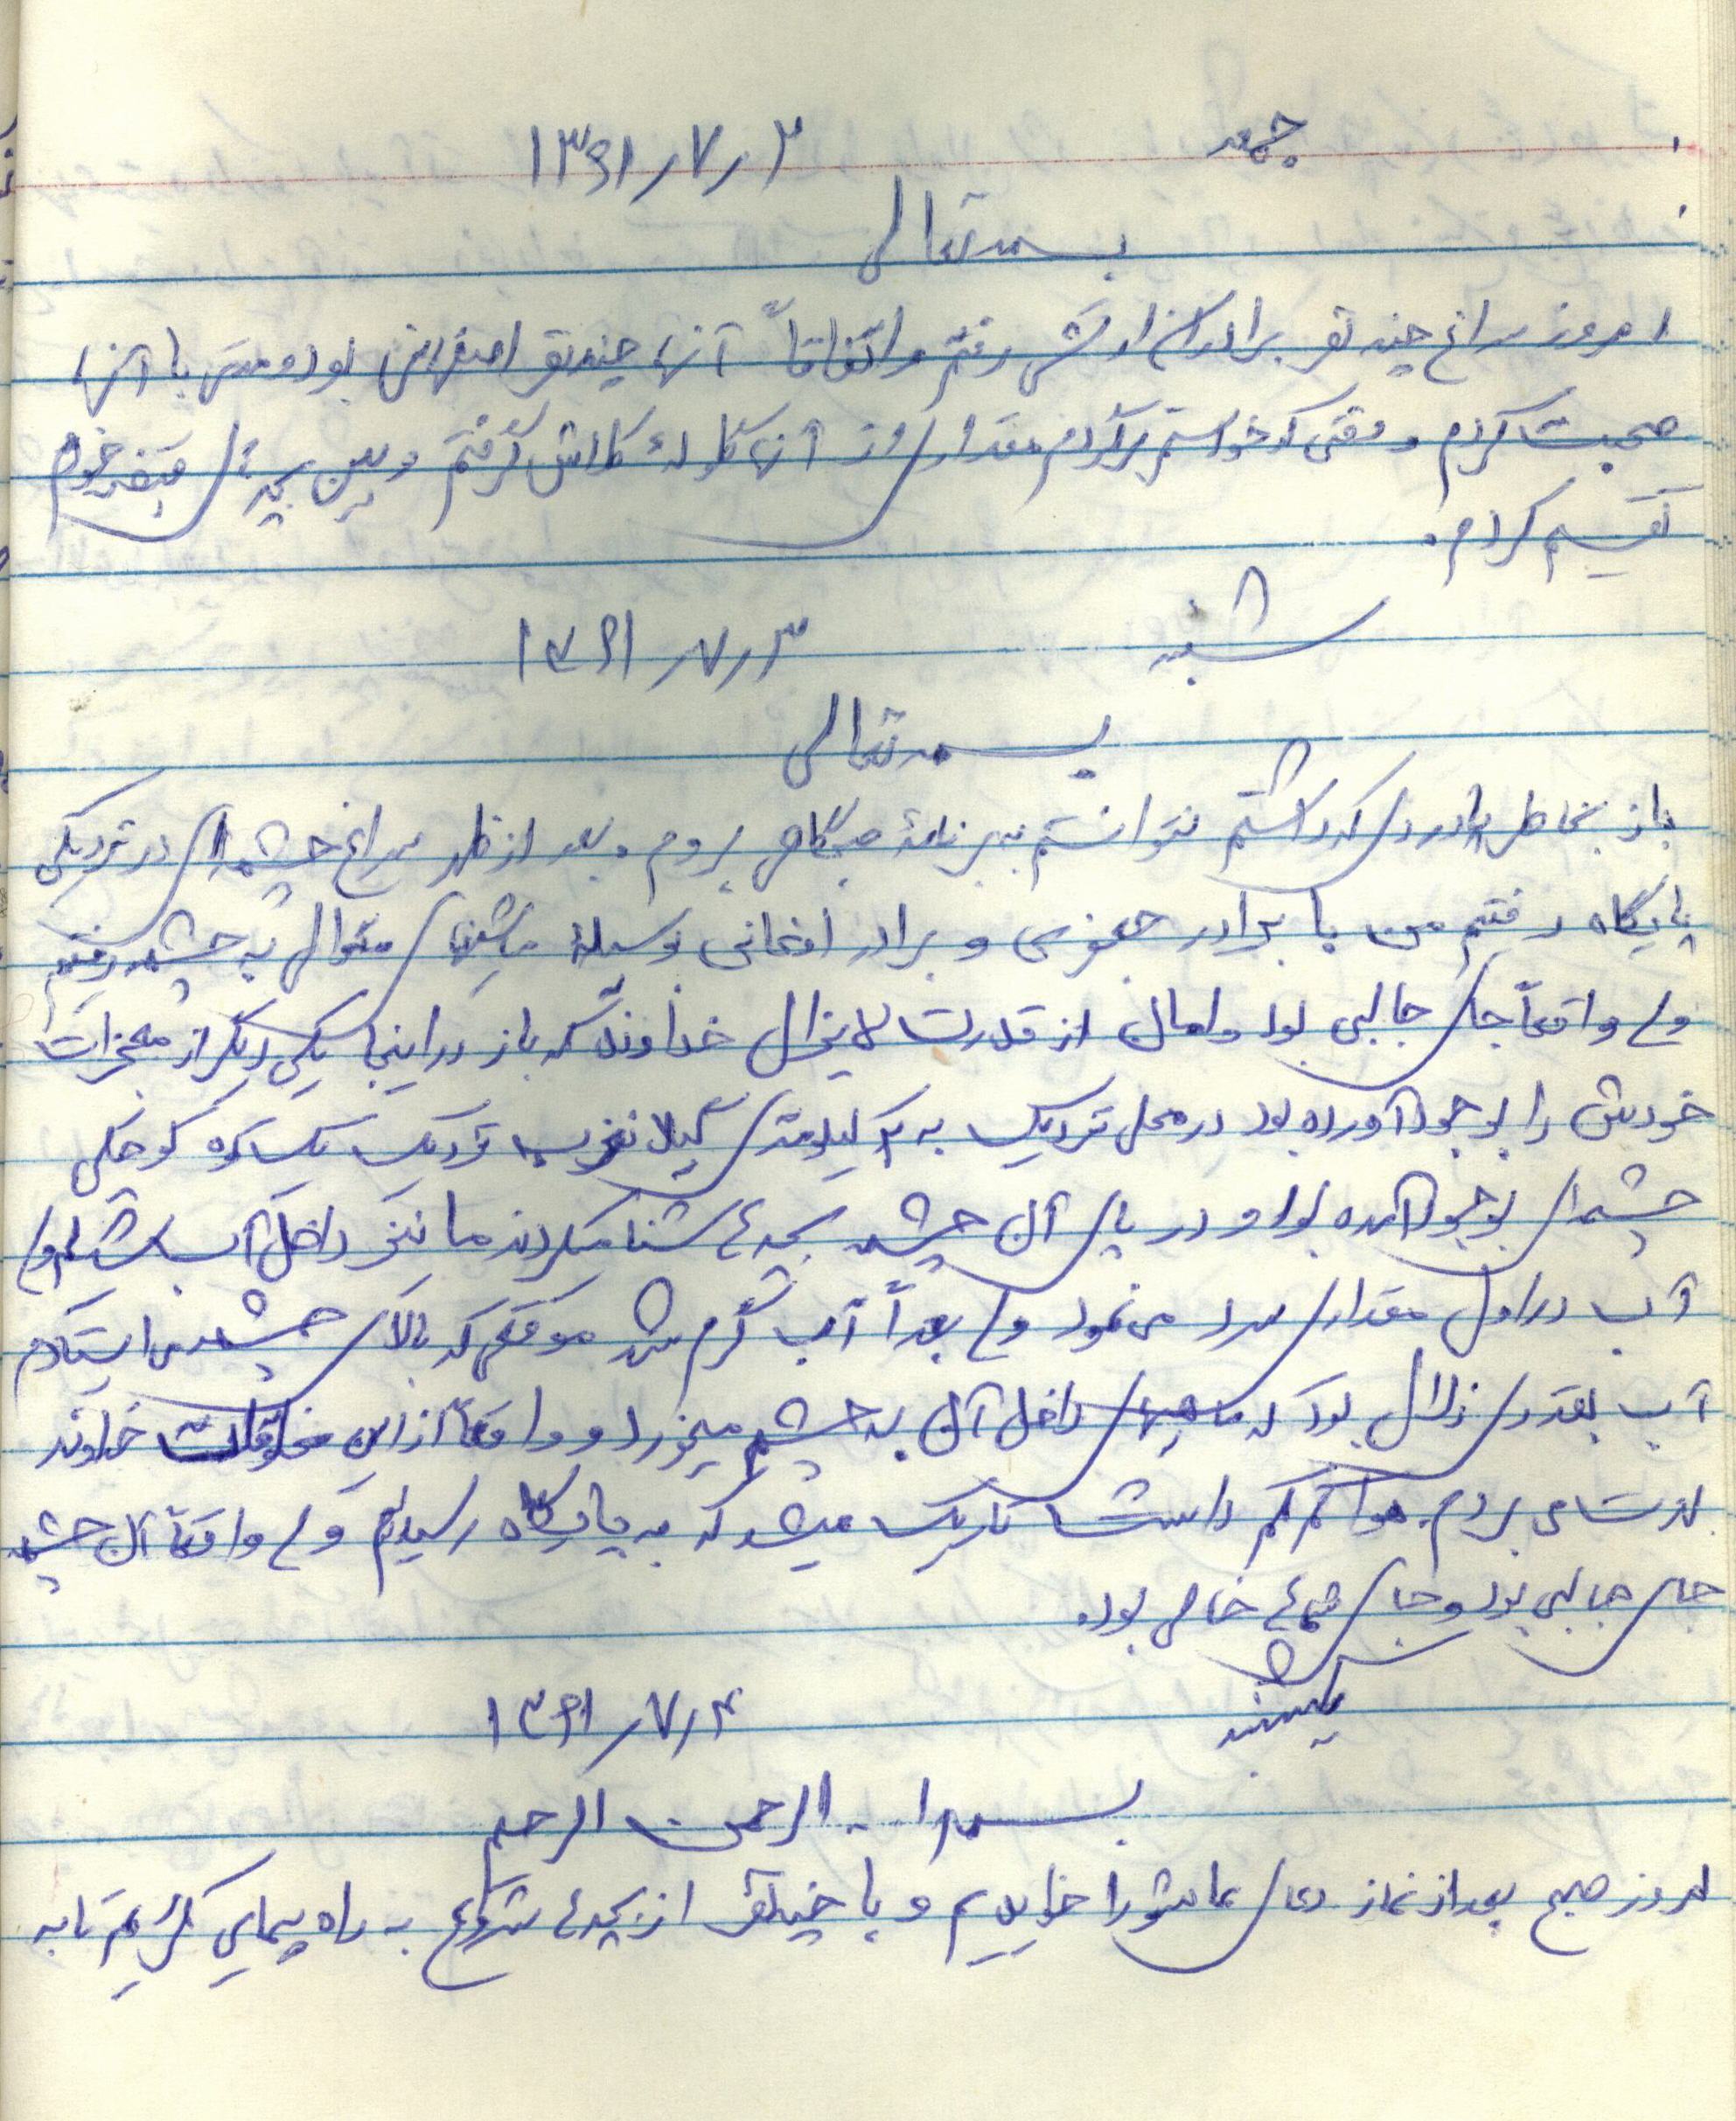 جمعه ۱۳۶۱/۷/۲
بسمه تعالی
امروز سراغ چند نفر برادران ارتشی رفتم و اتفاقاً آنها چند نفر اصفهانی بودند من با آنها
صحبت کردم و وقتی که خواستم برگردم مقداری از آنها گلوله کلاش گرفتم و بین بچه‌های قبضه خودم
تقسیم کردم.
شنبه ۱۳۶۱/۷/۳
بسمه تعالی
باز بخاطر پادردی که داشتم نتوانستم به برنامهٔ صبحگاهی بروم و بعد از ظهر سراغ چشمه‌ای در نزدیکی
پایگاه رفتیم من با برادر جعفری و برادر افغانی بوسیلهٔ ماشینهای متوالی به چشمه رفتیم
ولی واقعاً جای جالبی بود و امان از قدرت لایزال خداوند که باز در اینجا یکی دیگر از معجزات
خودش را بوجود آورده بود در محل نزدیک به ۲ کیلومتری گیلانغرب نزدیک یک کوه کوچکی
چشمه‌ای بوجود آمده بود و در پای آن چشمه بچه‌ها شنا میکردند ما نیز داخل آب شدیم ولی
آب در اول مقداری سرد می‌نمود ولی بعداً آب گرم شد موقعی که بالای چشمه می‌ایستادم
آب بقدری زلال بود که ماهیهای داخل آن به چشم میخورد و واقعاً از این مخلوقات خداوند
لذت می بردم. هوا کم کم داشت تاریک میشد که به پایگاه رسیدیم ولی واقعاً آن چشمه
جای جالبی بود و جای خالی بود.
یکشنبه ۱۳۶۱/۷/۴
بسم ا... الرحمن الرحیم
امروز صبح بعد از نماز دعای عاشورا خواندیم و با چند نفر از بچه‌ها شروع به راه پیمایی کردیم تا به